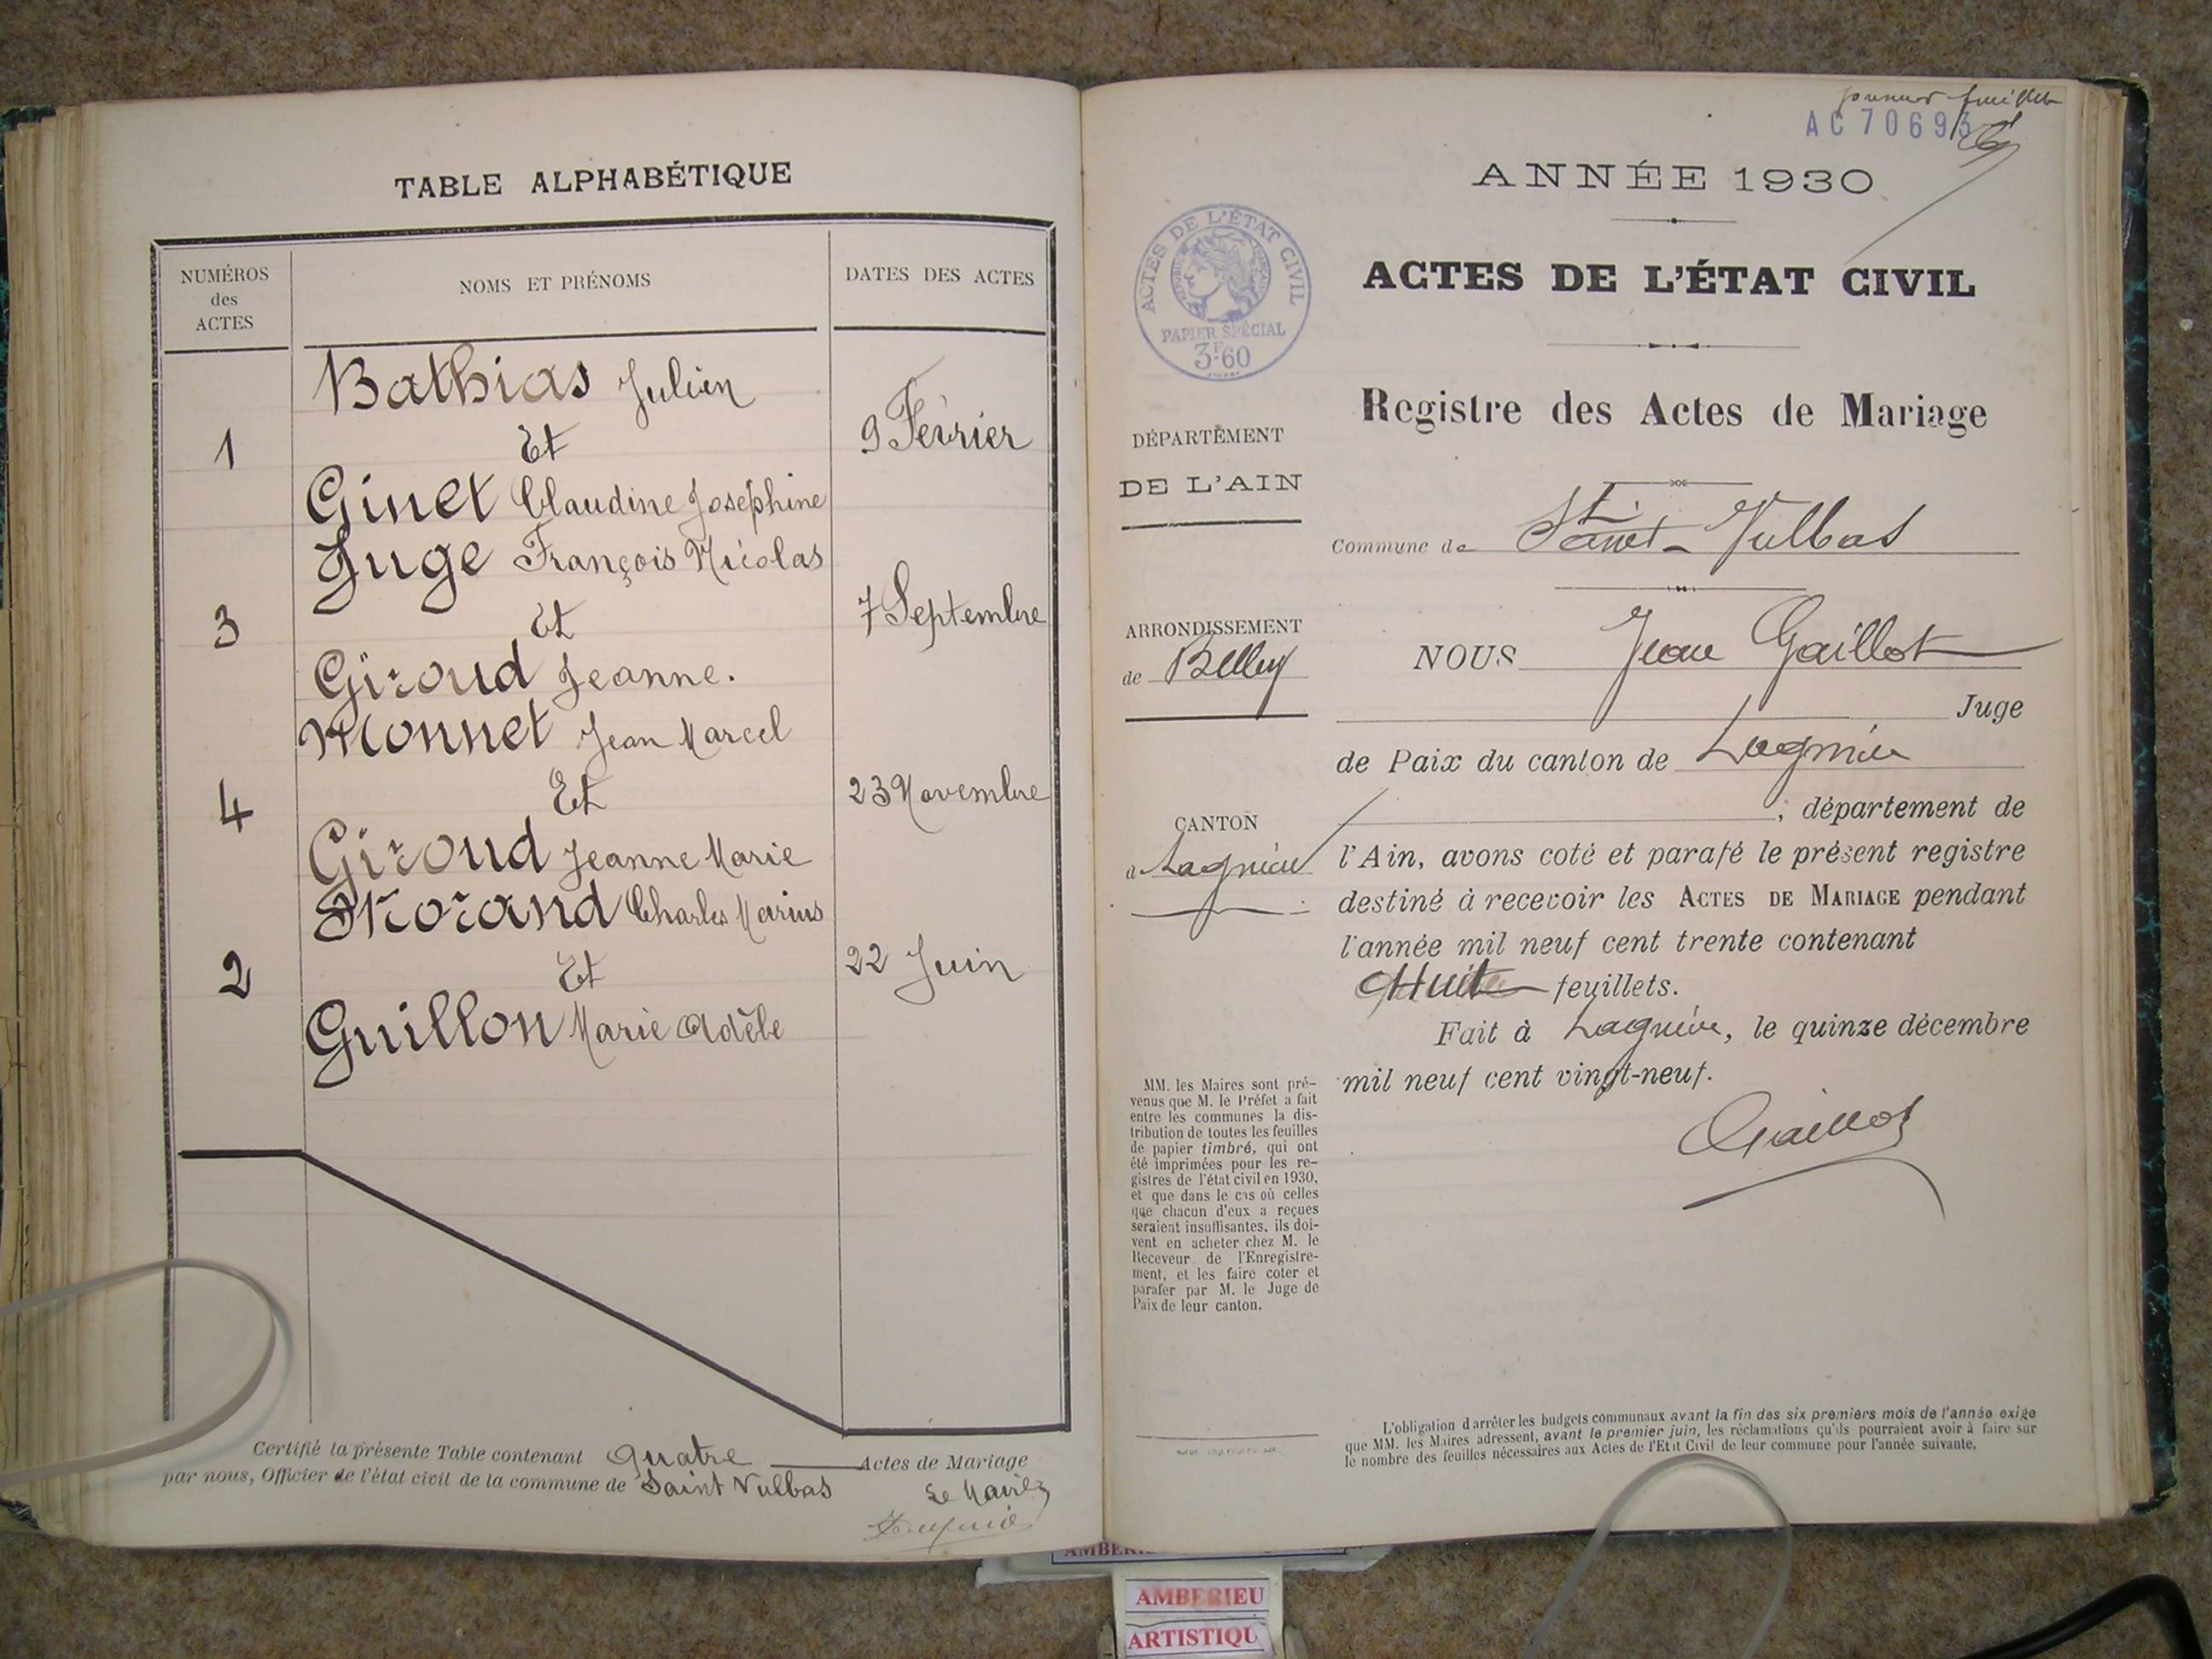 TABLE ALPHABÉTIQUE
NUMÉROS des ACTES
NOMS ET PRÉNOMS
DATES DES ACTES
Bathias Julien
1 Et 9 Février
Ginet Claudine Josephine
Juge François Nicolas
3 Et 7 Septembre
Giroud Jeanne.
Monnet Jean Marcel
4 Et 23 Novembre
Giroud Jeanne Marie
Morand Charles Marius
2 Et 22 Juin
Guillon Marie Adèle
Certifié la présente Table contenant quatre Actes de Mariage
par nous, Officier de l'état civil de la commune de Saint Vulbas
Le Maire
feuillet
AC 70693
ANNÉE 1930
ACTES DE L'ÉTAT CIVIL
PAPIER SPÉCIAL
3F.60
ACTES DE L'ÉTAT CIVIL
Registre des Actes de Mariage
DÉPARTEMENT
DE L'AIN
Commune de St- Vulbas
ARRONDISSEMENT
de Belley
NOUS Jean Gaillot
Juge
de Paix du canton de Lagnieu
; département de
CANTON
d Lagnieu
l'Ain, avons coté et parafé le présent registre
destiné à recevoir les ACTES DE MARIAGE pendant
l'année mil neuf cent trente contenant
Huit feuillets.
Fait à Lagnieu, le quinze décembre
mil neuf cent vingt-neuf.
Gaillot
MM. les Maires sont pré-
venus que M. le Préfet a fait
entre les communes la dis-
tribution de toutes les feuilles
de papier timbré, qui ont
été imprimées pour les re-
gistres de l'état civil en 1930,
et que dans le cas où celles
que chacun d'eux a reçues
seraient insuffisantes, ils doi-
vent en acheter chez M. le
Receveur de l'Enregistre-
ment, et les faire coter et
parafer par M. le Juge de
Paix de leur canton.
L'obligation d'arrêter les budgets communaux avant la fin des six premiers mois de l'année exige
que MM. les Maires adressent, avant le premier juin, les réclamations qu'ils pourraient avoir à faire sur
le nombre des feuilles nécessaires aux Actes de l'Etat Civil de leur commune pour l'année suivante.
AMBERIEU
ARTISTIQU